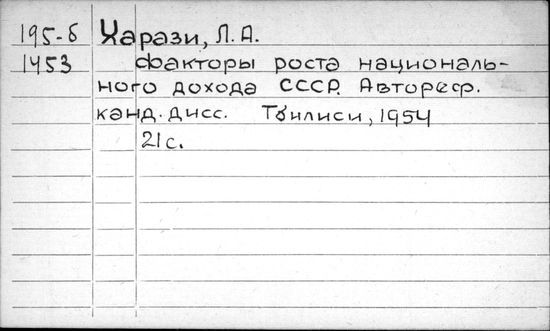 195-б Харази, Л.А.
1453 Факторы роста националь-
ного дохода СССР. Автореф.
канд. дисс. Тбилиси, 1954
21с.